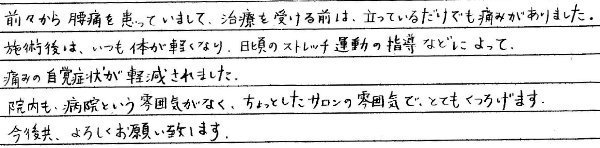 前々から腰痛を患っていまして、治療を受ける前は、立っているだけでも痛みがありました。
施術後は、いつも体が軽くなり、日頃のストレッチ運動の指導などによって、
痛みの自覚症状が軽減されました。
院内も、病院という雰囲気がなく、ちょっとしたサロンの雰囲気で、とてもくつろげます。
今後共、よろしくお願い致します。